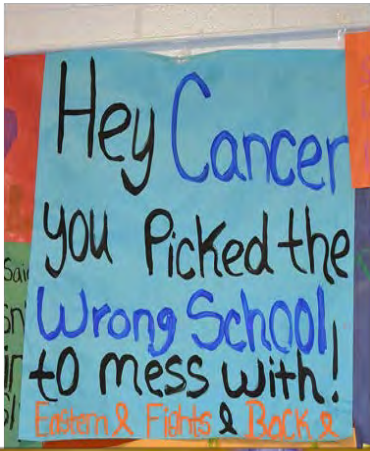 Hey Cancer
you Picked the
Wrong School
to mess with!
Eastern Fights & Back